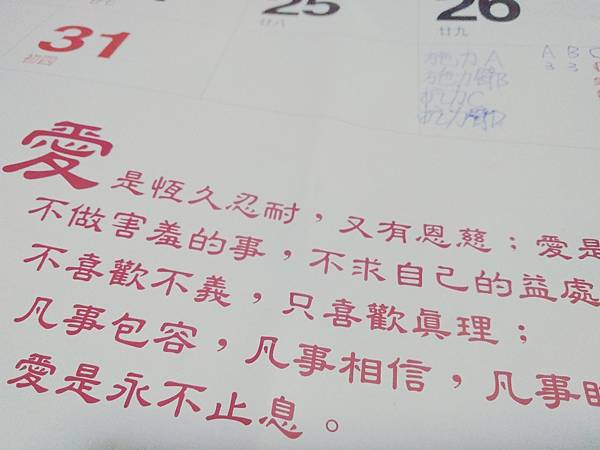 25
26
廿八
廿九
31
初四
A B C
3 3
愛是恆久忍耐，又有恩慈；愛是
不做害羞的事，不求自己的益處
不喜歡不義，只喜歡真理；
凡事包容，凡事相信，凡事
愛是永不止息。